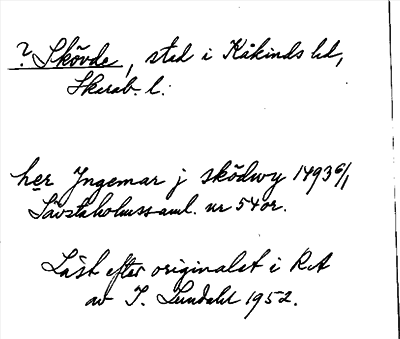 ? Skövde, stad i Kåkinds hd,
Skarab. l.
her Yngemar j skôdwy 1493 6/1
Sävstaholmssaml. nr 54 or.
Läst efter originalet i RA
av I. Lundahl 1952.